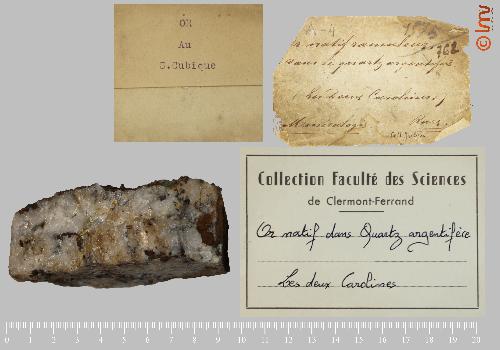 OR
Au
S.Cubique
762
Or natif
dans le quartz argentifère
(Les deux Carolines)
Collection Faculté des Sciences
de Clermont-Ferrand
Or natif dans Quartz argentifère
Les deux Carolines
0 1 2 3 4 5 6 7 8 9 10 11 12 13 14 15 16 17 18 19 20
© lmv